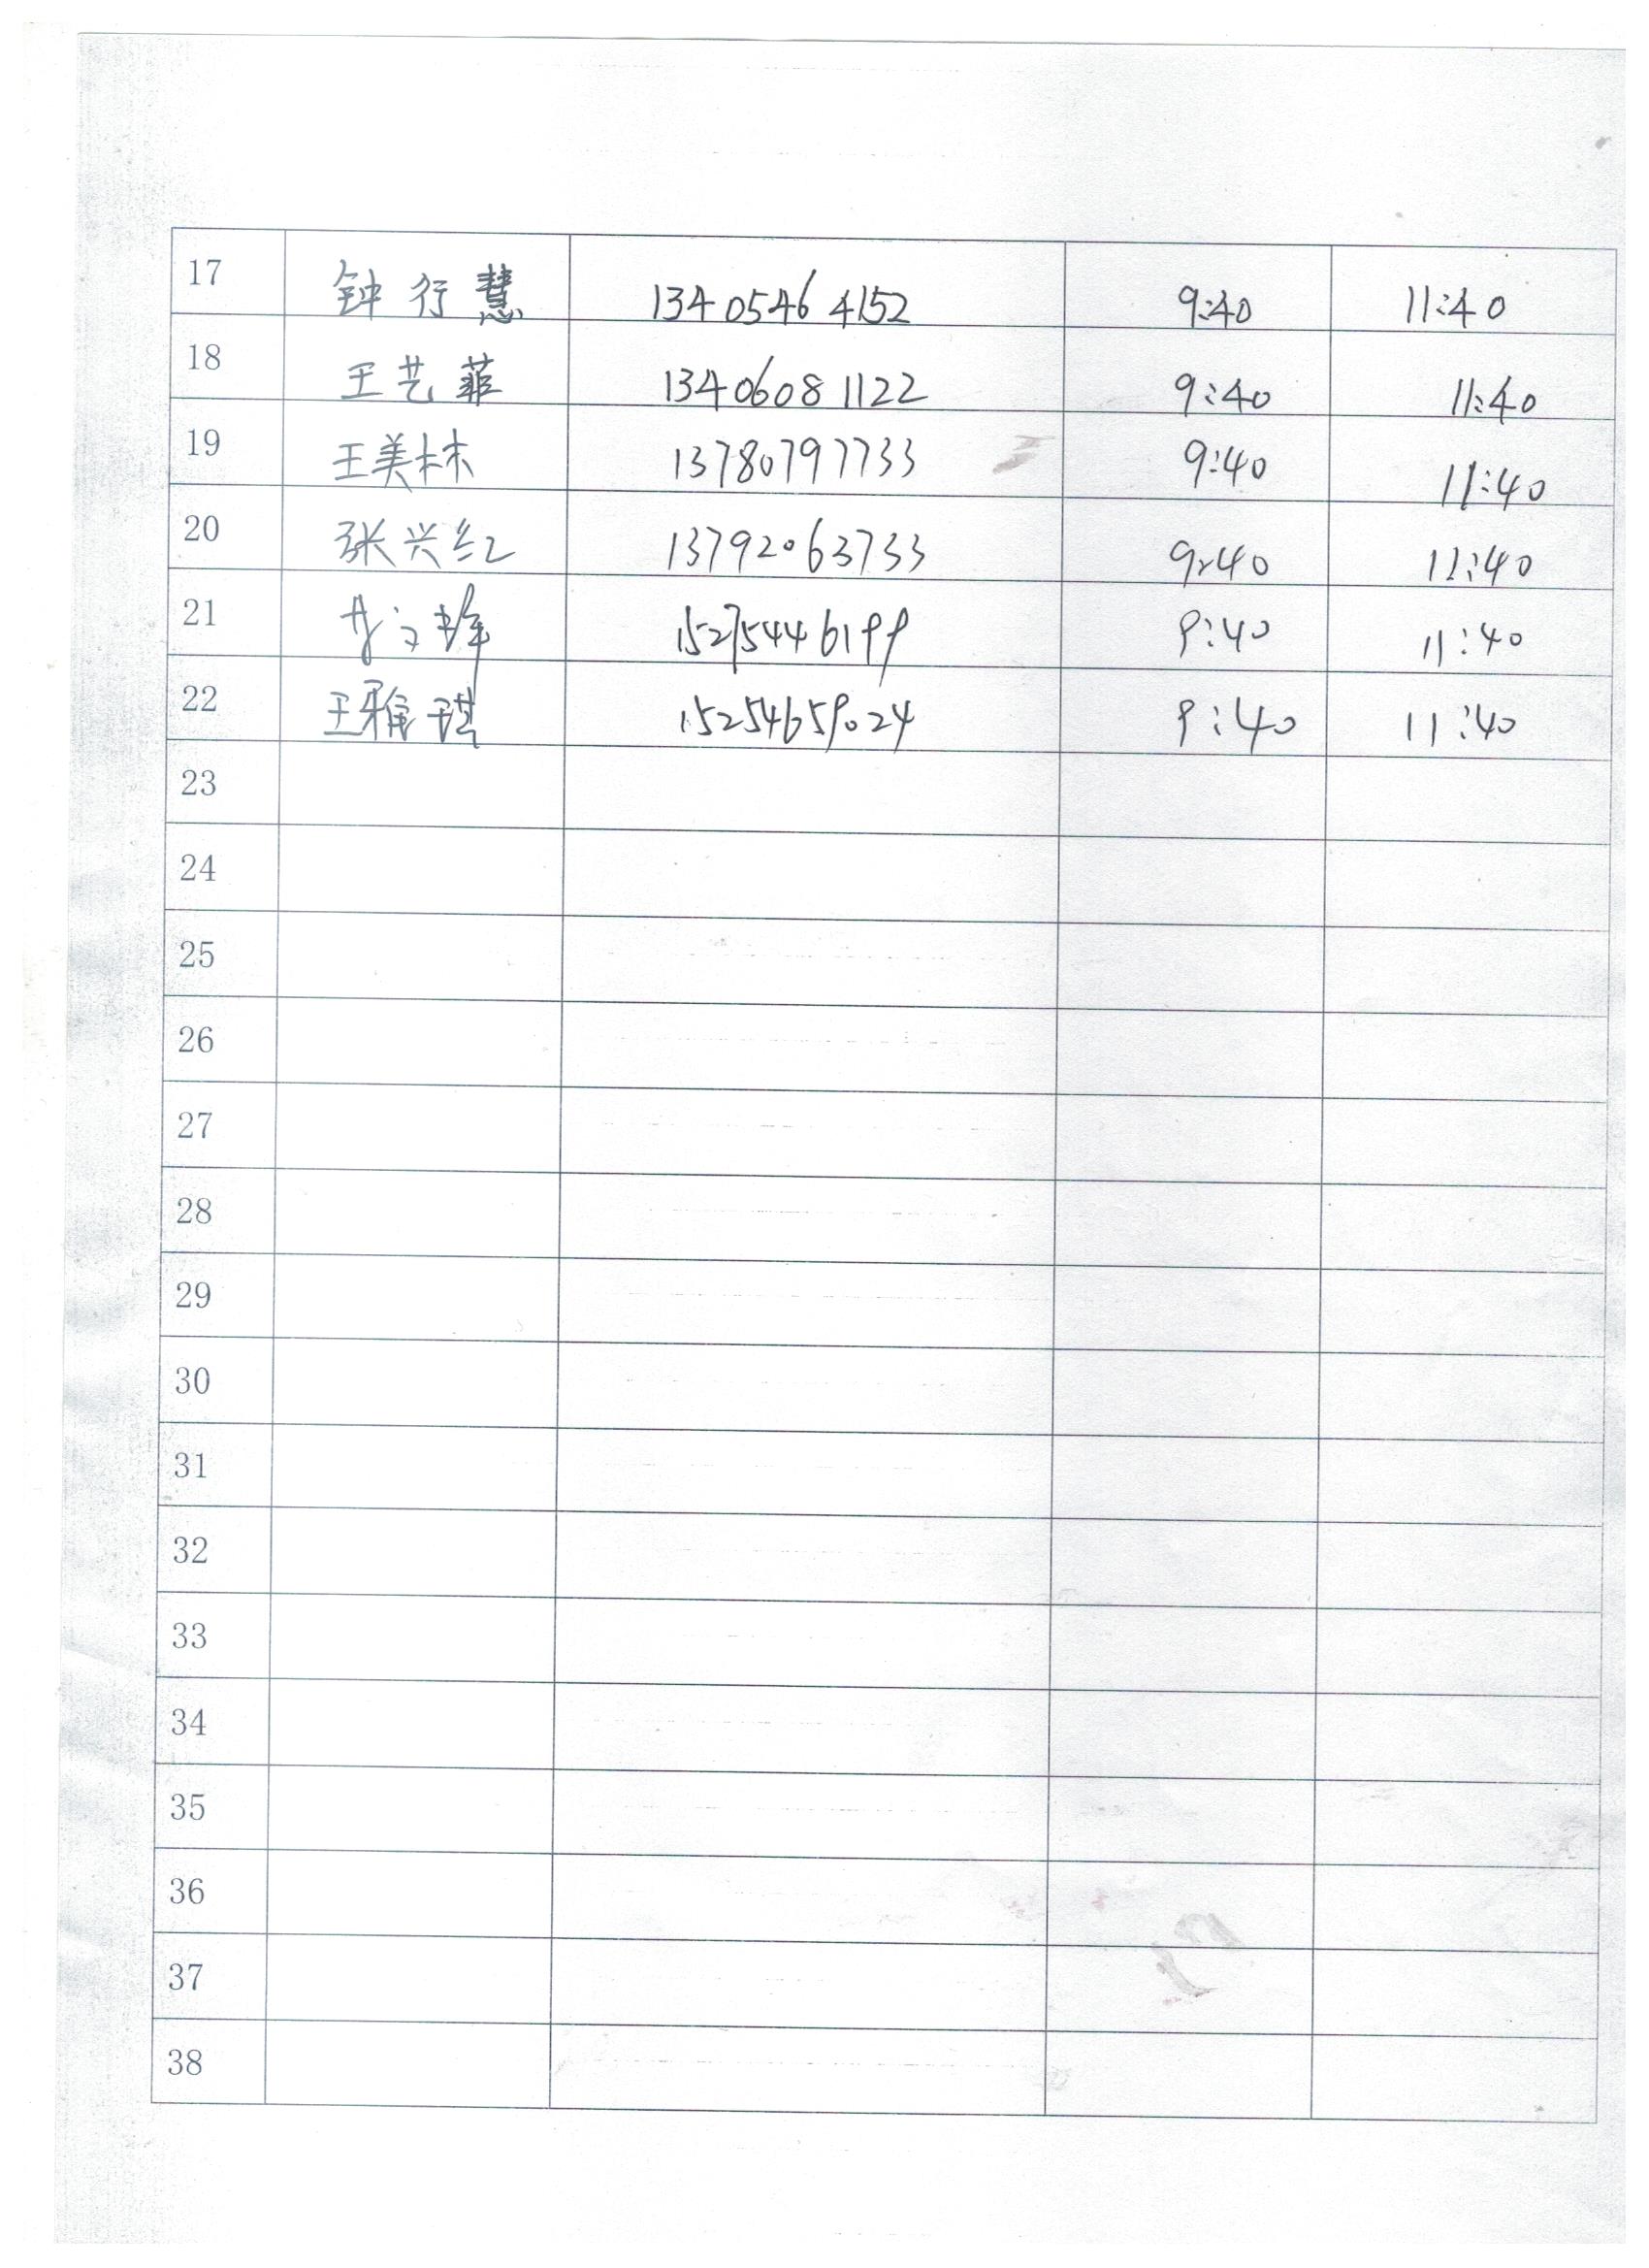 17 钟行慧 13405464152 9:40 11:40
18 王艺菲 13406081122 9:40 11:40
19 王美林 13780797733 9:40 11:40
20 张兴红 13792063733 9:40 11:40
21 15275446199 9:40 11:40
22 王雅琪 15254659024 9:40 11:40
23
24
25
26
27
28
29
30
31
32
33
34
35
36
37
38